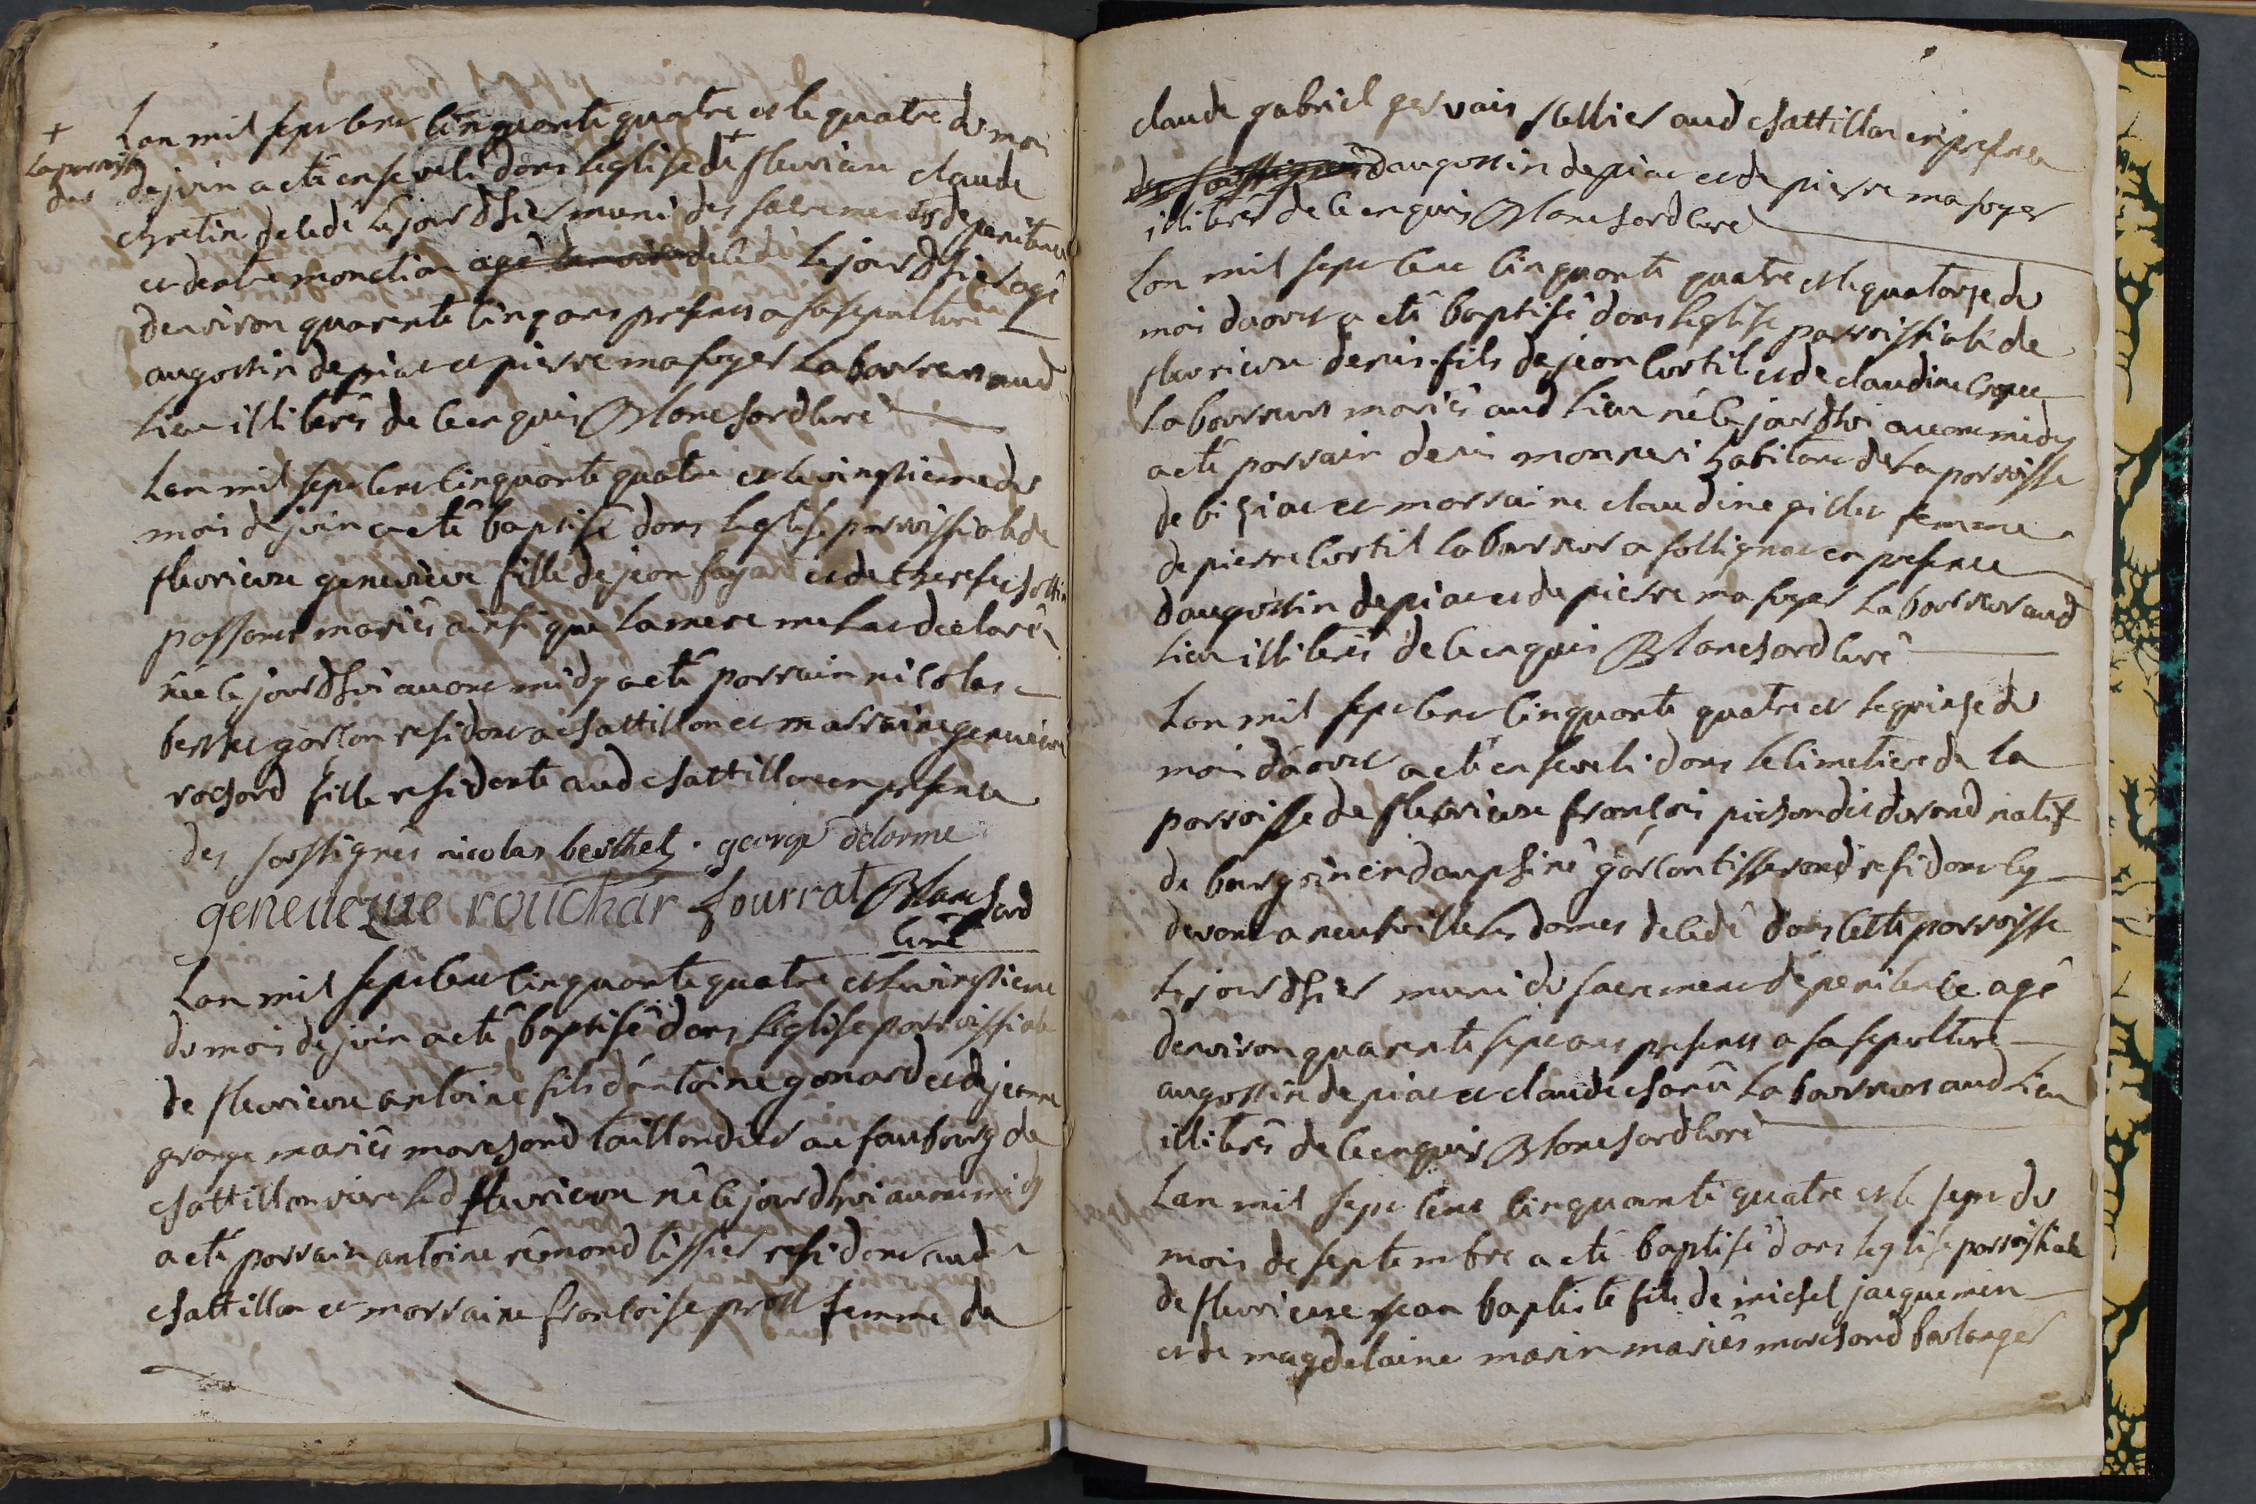 +
la parroisse
de
Lan mil sept cent cinquante quatre et le quatre du moi
de juin a eté enseveli dans leglise de + fleurieu claude
chretin decedé le jour dhier muni des sacrements de penitence
et dextremonction agé denviron decedé le jour dhier agé
denviron quarente cinq ans presents a sa sepulture
augostin depiat et pierre mafoyer laboureurs aud
lieu illiterés de ce enquis Blanchard curé
Lan mil sept cent cinquante quatre et le vingtieme du
mois de juin a eté baptisé dans leglise parroissiale de
fleurieux genevieve fille de jean fayar et de therese
passants mariés ainsi que la mere me lat declaré
née le jourdhui avant midy a eté parrain nicolas
berthet garcon residant a chattillon et marraine genevieve
rochard fille residente aud chattillon en presence
des soussignés nicolas berthet . george delorme
geneuezue rouchar fourrat Blanchard
curé
Lan mil sept cent cinquante quatre et le vingtieme
du mois de juin a eté baptisé dans leglise parroissiale
de fleurieux antoine fils dantoine gonard et de jeanne
grange mariés marchand taillandier au faubourg de
chattillon vers led fleurieux né le jourdhui avant midy
a eté parrain antoine rémond tissier residant aud
chattillon et marraine francoise prost femme de
claude gabriel gervais sellier aud chattillon en presence
des soussignés daugostin depiat et de pierre mafoyer
illiterés de ce enquis Blanchard curé
Lan mil sept cent cinquante quatre et le quatorze du
mois daoust a eté baptisé dans leglise parroissiale de
fleurieux denis fils de jean curtil et de claudine
laboureurs mariés aud lieu né le jourdhui avant midy
a eté parrain denis monneri habitant de la parroisse
de bisiat et marraine claudine gillet femme
de pierre curtil laboureur a sollignat en presence
daugostin depiat et de pierre mafoyer laboureur aud
lieu illiterés de ce enquis Blanchard curé
Lan mil sept cent cinquante quatre et le quinze du
mois daoust a eté enseveli dans le cimetiere de la
parroisse de fleurieux francois pichon dit durand natif
de bourgoin en dauphiné garcon tisserand residant cy
devant a neufville les dames decedé dans cette parroisse
le jour dhier muni du sacrement de penitence agé
denviron quarente sept ans presents a sa sepulture
augostin depiat et claude charû laboureurs aud lieu
illiterés de ce enquis Blanchard curé
Lan mil sept cent cinquante quatre et le sept du
mois de septembre a eté baptisé dans leglise parroissiale
de fleurieux jean baptiste fils de michel jacquemin
et de magdelaine marin mariés marchand boulanger